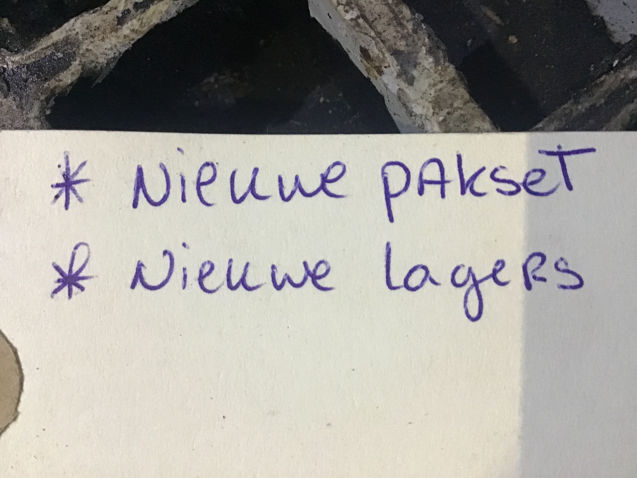 * Nieuwe pAkseT
* Nieuwe lageRs